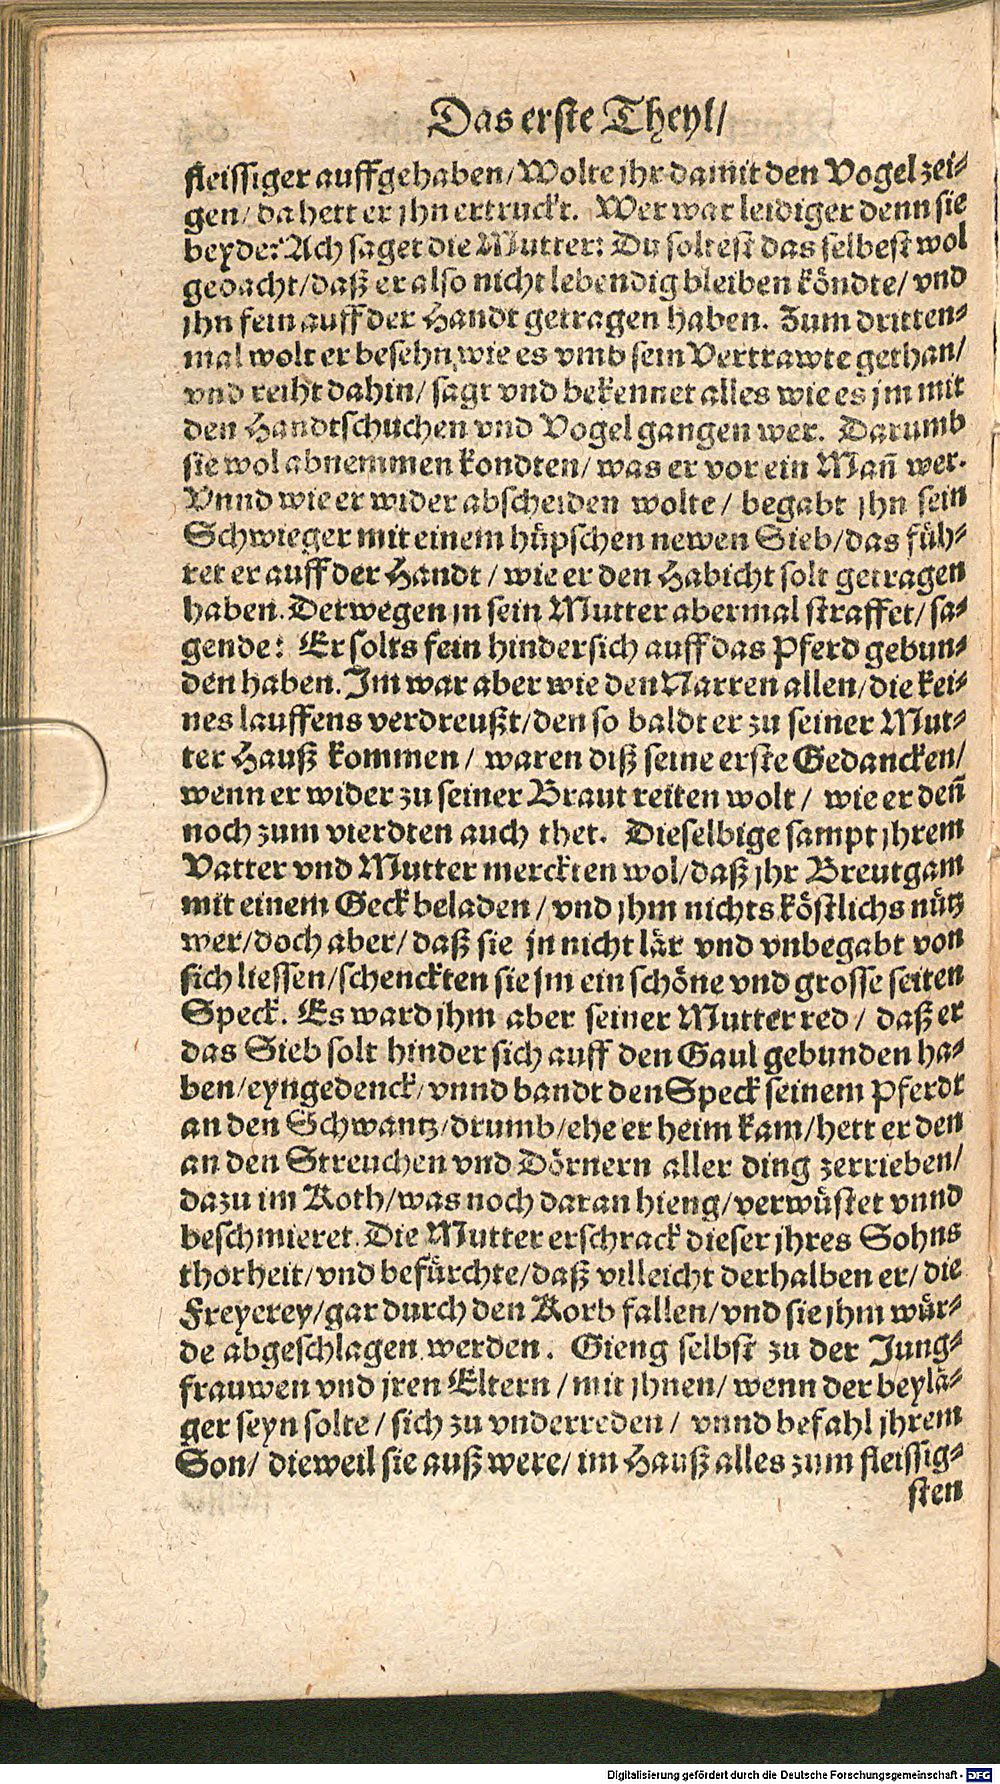 Das erste Theyl/
fleissiger auffgehaben/ Wolte jhr damit den Vogel zei-
gen/ da hett er jhn ertruckt. Wer war leidiger denn sie
beyde? Ach saget die Mutter: Du soltest das selbest wol
gedacht/ daß er also nicht lebendig bleiben köndte/ vnd
jhn fein auff der Handt getragen haben. Zum dritten-
mal wolt er besehn, wie es vmb sein Vertrawte gethan/
vnd reiht dahin/ sagt vnd bekennet alles wie es jm mit
den Handtschuchen vnd Vogel gangen wer. Darumb
sie wol abnemmen kondten/ was er vor ein Mañ wer.
Vnnd wie er wider abscheiden wolte/ begabt jhn sein
Schwieger mit einem hüpschen newen Sieb/ das füh-
ret er auff der Handt/ wie er den Habicht solt getragen
haben. Derwegen jn sein Mutter abermal straffet/ sa-
gende: Er solts fein hindersich auff das Pferd gebun-
den haben. Im war aber wie den Narren allen/ die kei-
nes lauffens verdreußt/ den so baldt er zu seiner Mut-
ter Hauß kommen/ waren diß seine erste Gedancken/
wenn er wider zu seiner Braut reiten wolt/ wie er deñ
noch zum vierdten auch thet. Dieselbige sampt jhrem
Vatter vnd Mutter merckten wol/ daß jhr Breutgam
mit einem Geck beladen/ vnd jhm nichts köstlichs nütz
wer/ doch aber/ daß sie jn nicht lär vnd vnbegabt von
sich liessen/ schenckten sie jm ein schöne vnd grosse seiten
Speck. Es ward jhm aber seiner Mutter red/ daß er
das Sieb solt hinder sich auff den Gaul gebunden ha-
ben/ eyngedenck/ vnnd bandt den Speck seinem Pferdt
an den Schwantz/ drumb/ ehe er heim kam/ hett er den
an den Streuchen vnd Dörnern aller ding zerrieben/
dazu im Koth/ was noch daran hieng/ verwüstet vnnd
beschmieret. Die Mutter erschrack dieser jhres Sohns
thorheit/ vnd befürchte/ daß villeicht derhalben er/ die
Freyerey/ gar durch den Korb fallen/ vnd sie jhm wür-
de abgeschlagen werden. Gieng selbst zu der Jung-
frauwen vnd jren Eltern/ mit jhnen/ wenn der beylä-
ger seyn solte/ sich zu vnderreden/ vnnd befahl jhrem
Son/ dieweil sie auß were/ im Hauß alles zum fleissig-
sten
Digitalisierung gefördert durch die Deutsche Forschungsgemeinschaft - DFG